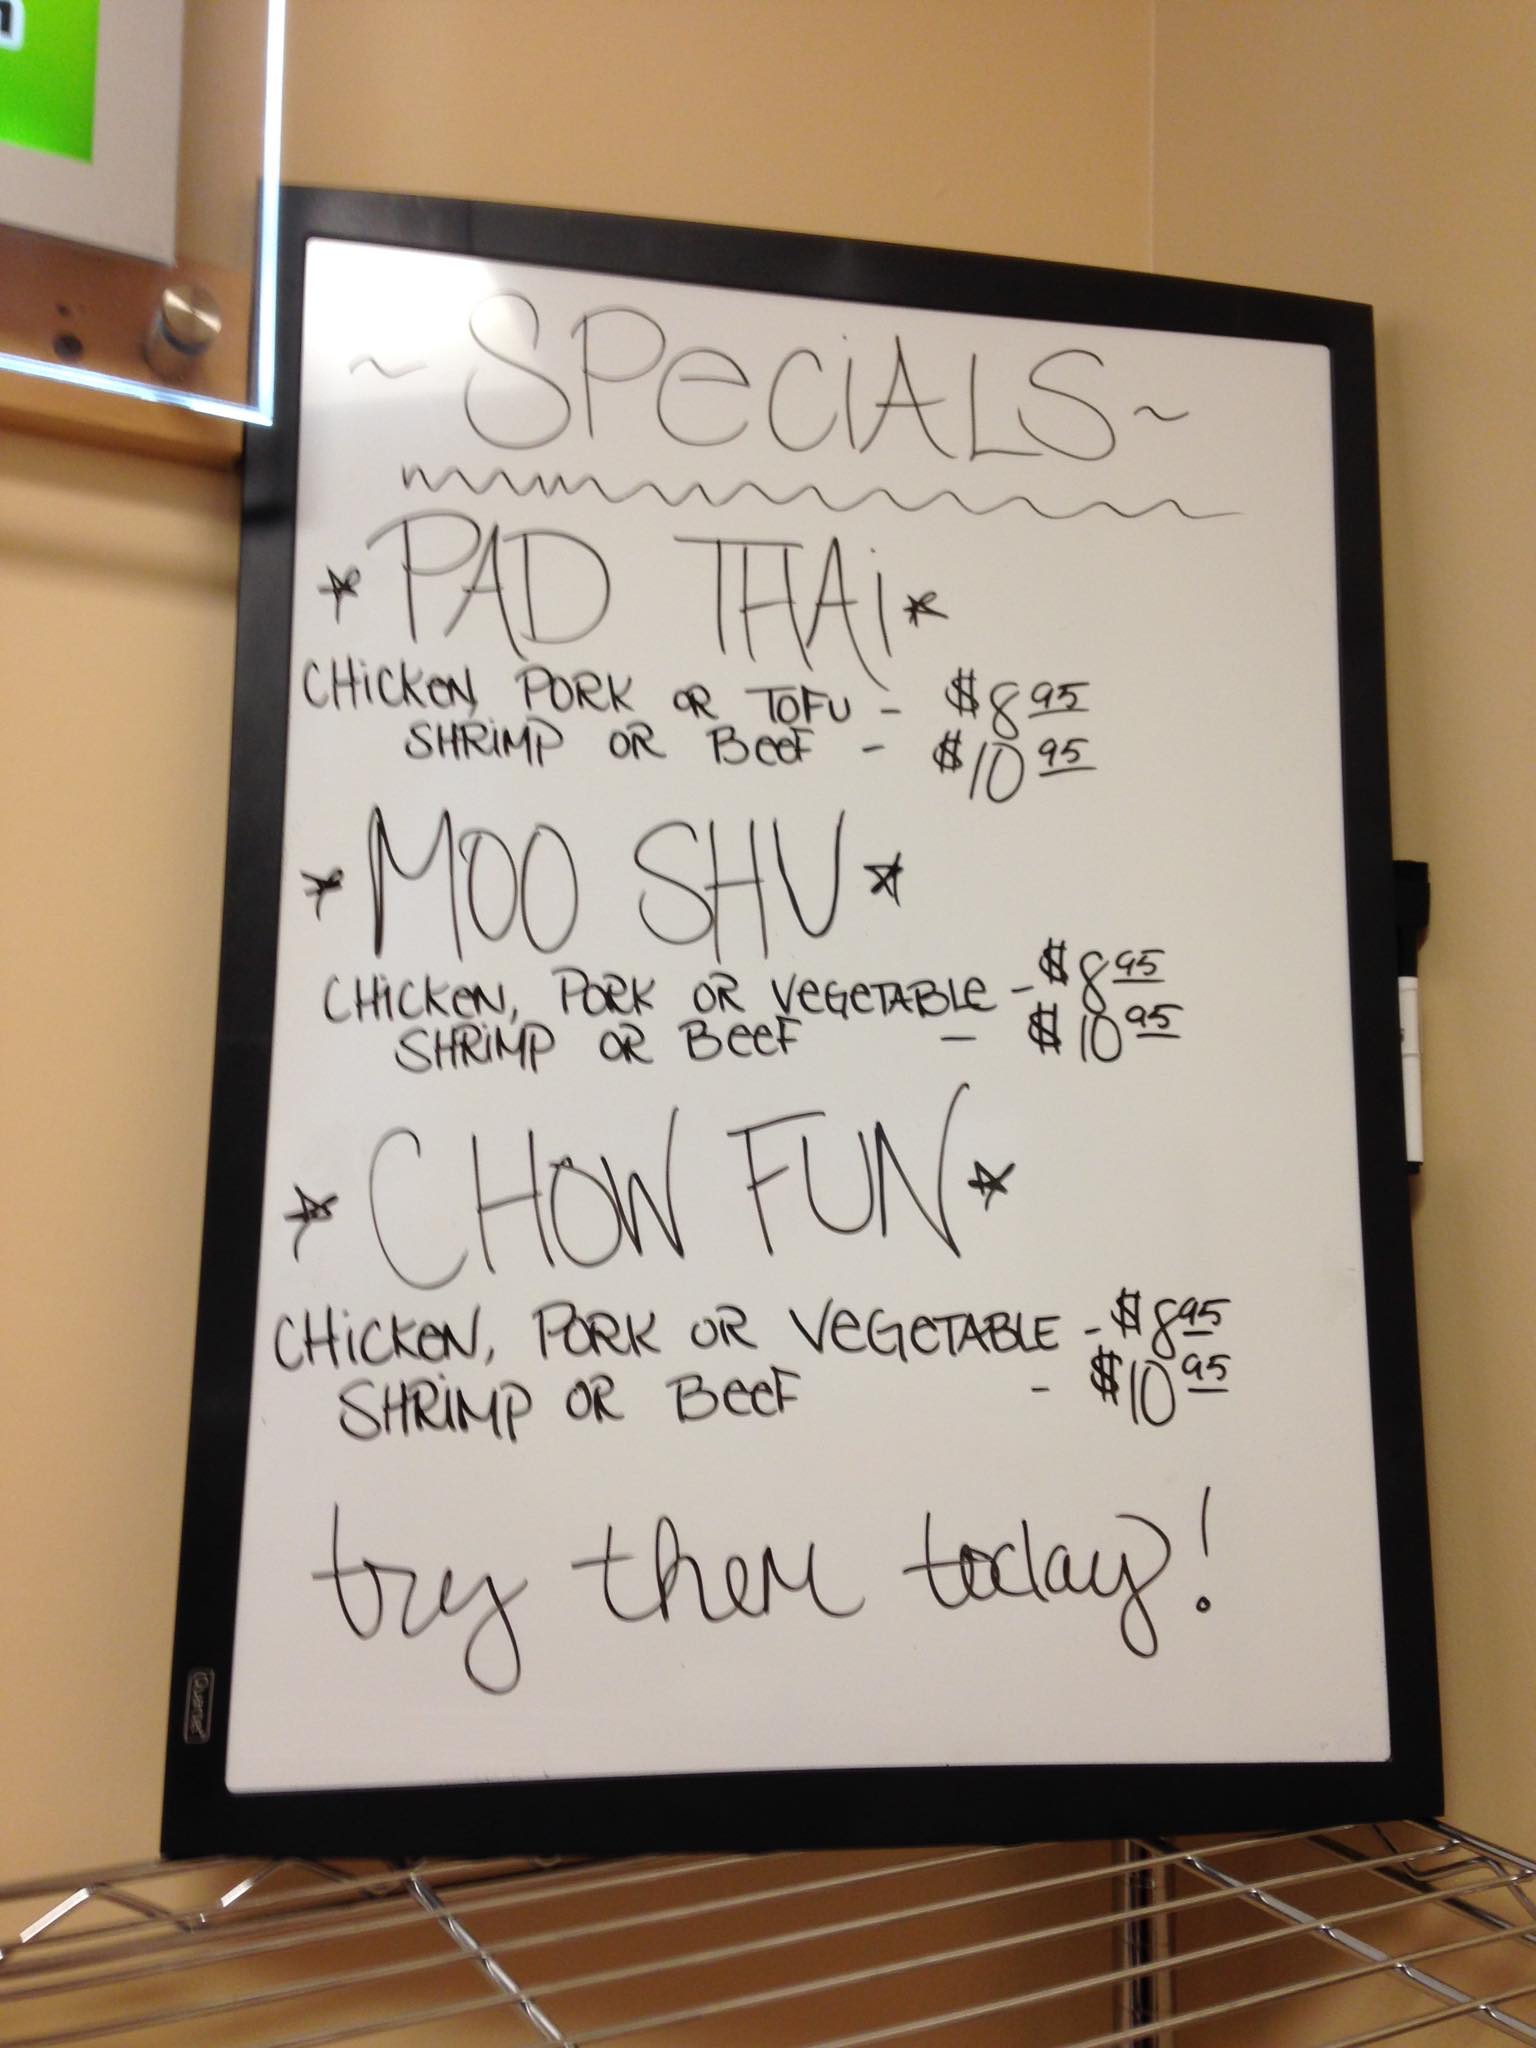 ~SPeCiALS~
*PAD THAi*
CHiCKeN, PORK OR TOFU - $8 95
SHRiMP OR BeeF - $10 95
*MOO SHU*
CHiCKeN, PORK OR VeGeTABLe - $8 95
SHRiMP OR BeeF - $10 95
*CHOW FUN*
CHiCKeN, PORK OR VeGeTABLE - $8 95
SHRiMP OR BeeF - $10 95
try them today!
Quartet